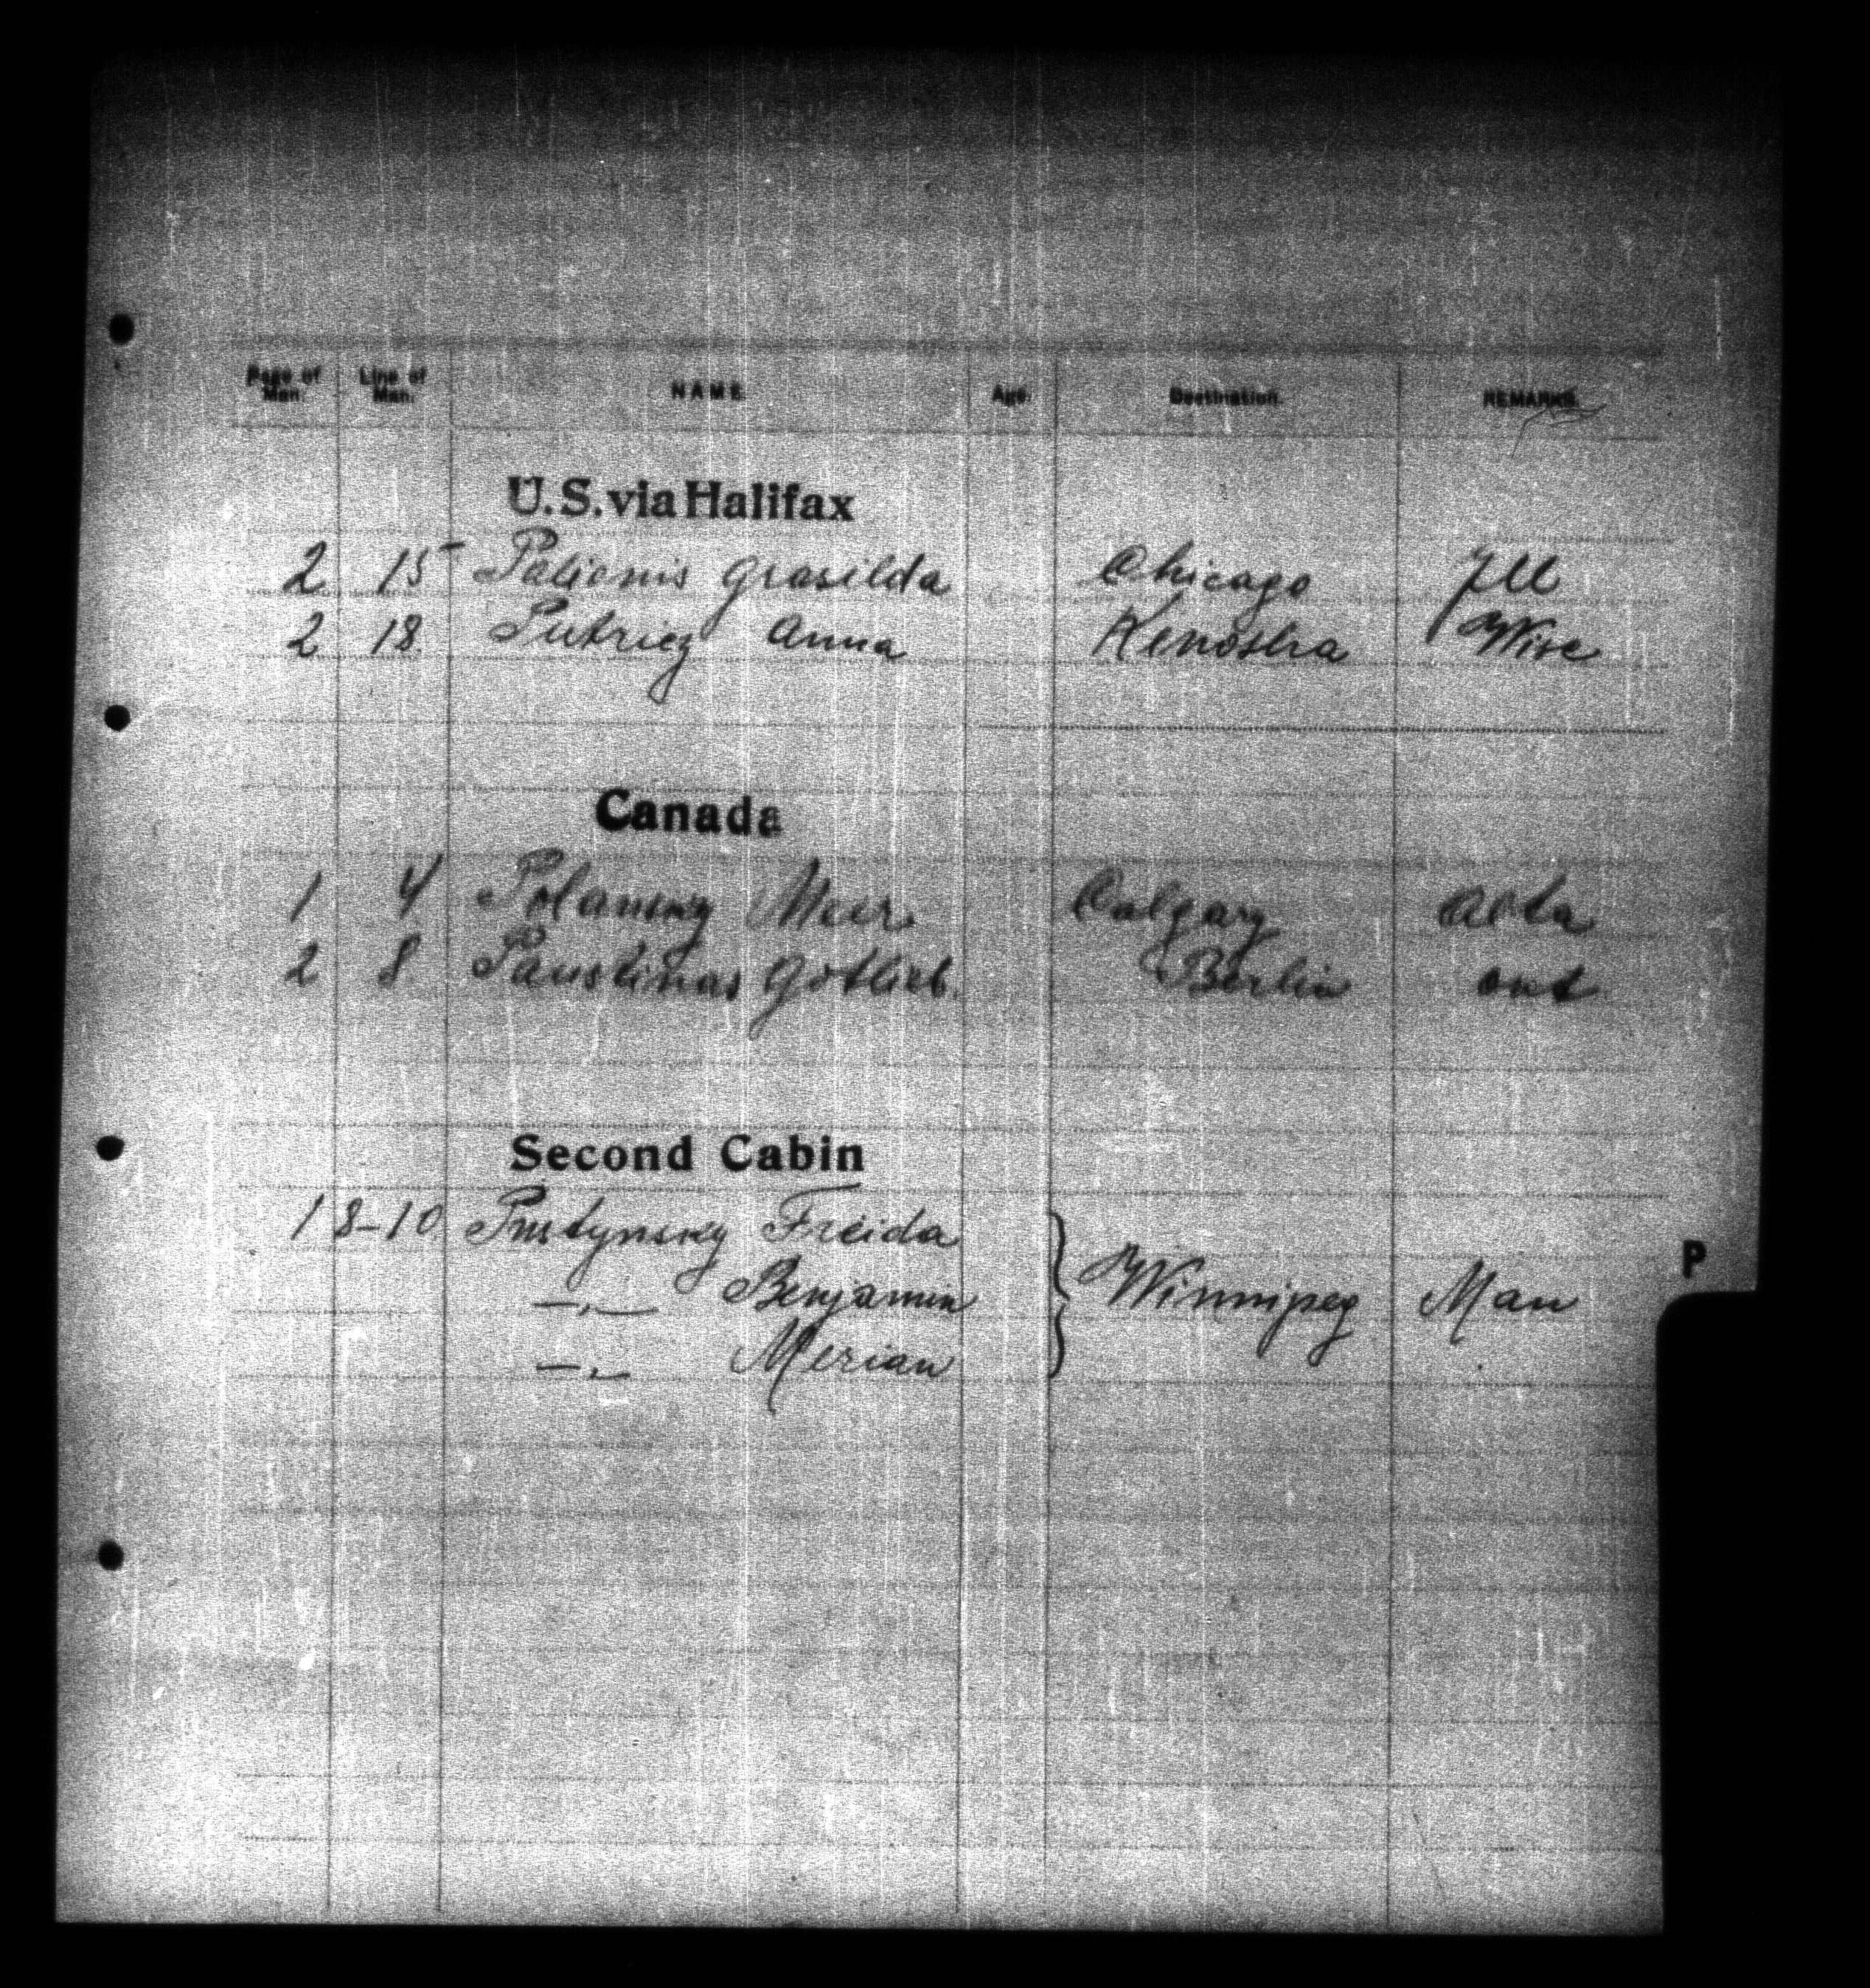 Page of Man. Line of Man. NAME Age. Destination. REMARKS.
U.S. via Halifax
2 15 Palionis Grasilda Chicago Ill
2 18. Putrieg Anna Kenosha Wisc
Canada
1 4 Polansky Meer Calgary Alta
2 8 Paustinas Gotlieb. Berlin ont
Second Cabin
1 8-10 Pustynsky Freida
P
—,,— Benjamin Winnipeg Man
—,,— Merian